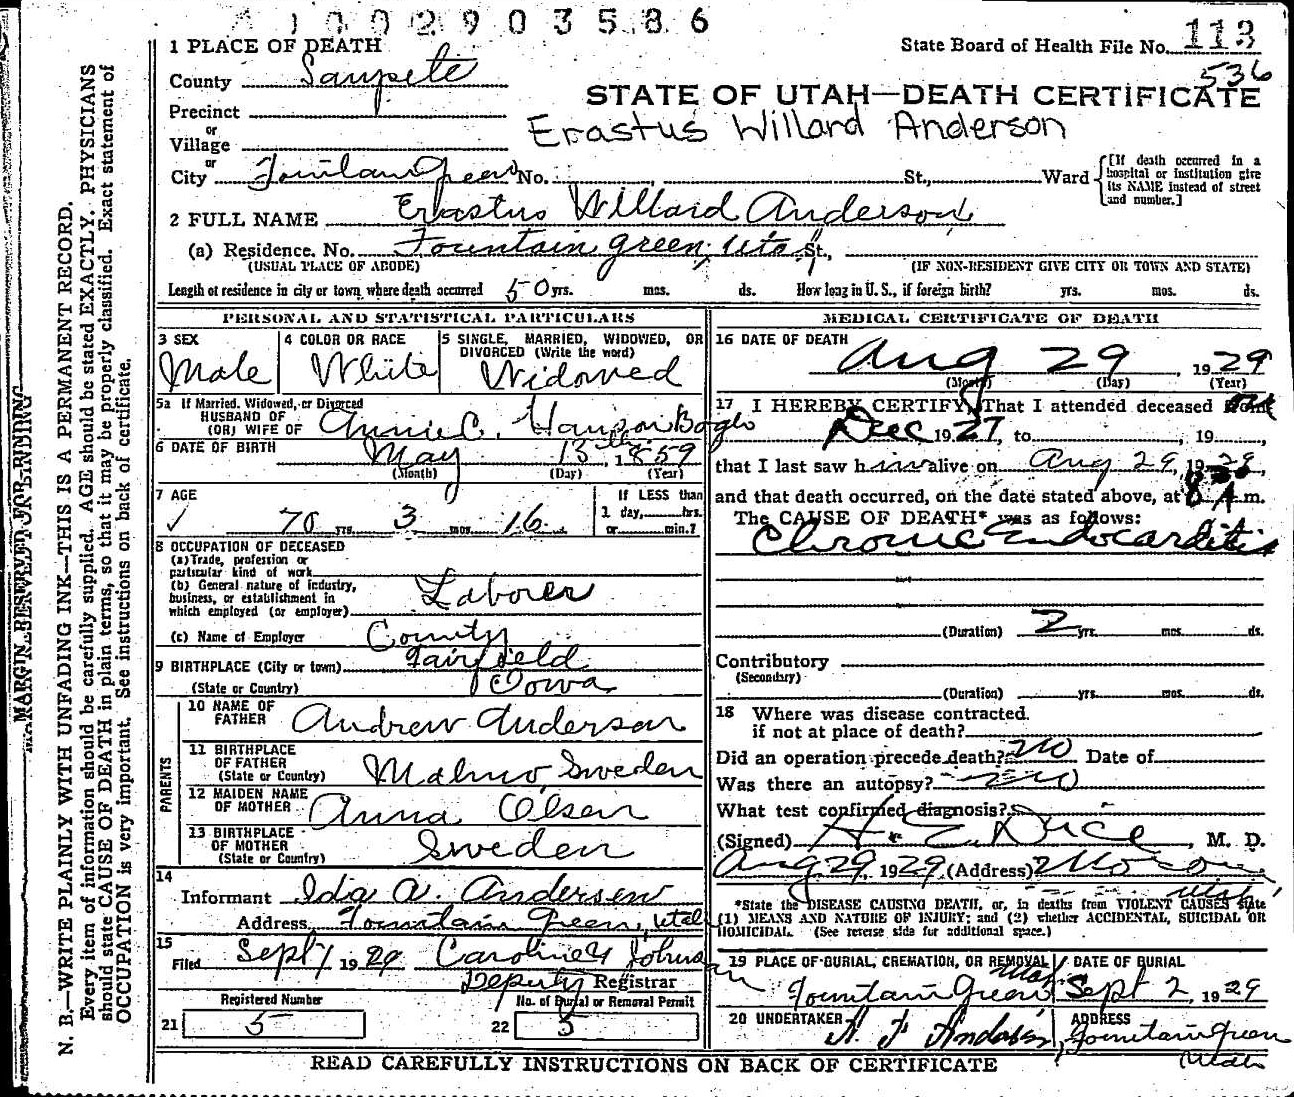 1002903586
State Board of Health File No. 113
536
1 PLACE OF DEATH
County Sanpete
STATE OF UTAH—DEATH CERTIFICATE
Precinct
Erastus Willard Anderson
or
Village
or
City Fountain Green No. St., Ward
[If death occurred in a hospital or institution give its NAME instead of street and number.]
2 FULL NAME Erastus Willard Anderson
(a) Residence. No. Fountain green, Utah St.,
(USUAL PLACE OF ABODE) (IF NON-RESIDENT GIVE CITY OR TOWN AND STATE)
Length of residence in city or town where death occurred 50 yrs. mos. ds. How long in U. S., if foreign birth? yrs. mos. ds.
PERSONAL AND STATISTICAL PARTICULARS
3 SEX
Male
4 COLOR OR RACE
White
5 SINGLE, MARRIED, WIDOWED, OR DIVORCED (Write the word)
Widowed
5a If Married, Widowed, or Divorced
HUSBAND OF
(OR) WIFE OF Annie C. Hanson
6 DATE OF BIRTH May 13th, 1859
(Month) (Day) (Year)
7 AGE
70 yrs. 3 mos. 16
If LESS than 1 day, hrs. or min.?
8 OCCUPATION OF DECEASED
(a) Trade, profession or
particular kind of work
(b) General nature of industry,
business, or establishment in
which employed (or employer)
Laborer
(c) Name of Employer County
9 BIRTHPLACE (City or town) Fairfield
(State or Country) Iowa
PARENTS
10 NAME OF FATHER Andrew Anderson
11 BIRTHPLACE OF FATHER (State or Country) Malmo, Sweden
12 MAIDEN NAME OF MOTHER Anna Olsen
13 BIRTHPLACE OF MOTHER (State or Country) Sweden
14
Informant Ida A. Andersen
Address Fountain Green, Utah
15
Filed Sept 1 1929 Caroline Y Johnson
Deputy Registrar
Registered Number
21 5
No. of Burial or Removal Permit
22 5
MEDICAL CERTIFICATE OF DEATH
16 DATE OF DEATH
Aug 29 1929
(Month) (Day) (Year)
17 I HEREBY CERTIFY, That I attended deceased from
Dec 1927, to , 19 ,
that I last saw him alive on Aug 29, 1929,
and that death occurred, on the date stated above, at 8 A m.
The CAUSE OF DEATH* was as follows:
Chronic Endocarditis
(Duration) 2 yrs. mos. ds.
Contributory
(Secondary)
(Duration) yrs. mos. ds.
18 Where was disease contracted
if not at place of death?
Did an operation precede death? no Date of
Was there an autopsy? no
What test confirmed diagnosis?
(Signed) M. D.
Aug 29, 1929 (Address) Moroni
Utah
*State the DISEASE CAUSING DEATH, or, in deaths from VIOLENT CAUSES state
(1) MEANS AND NATURE OF INJURY; and (2) whether ACCIDENTAL, SUICIDAL OR
HOMICIDAL. (See reverse side for additional space.)
19 PLACE OF BURIAL, CREMATION, OR REMOVAL
Fountain Green Utah
DATE OF BURIAL
Sept 2, 1929
20 UNDERTAKER
ADDRESS
Fountain Green
Utah
READ CAREFULLY INSTRUCTIONS ON BACK OF CERTIFICATE
MARGIN RESERVED FOR BINDING
N. B.—WRITE PLAINLY WITH UNFADING INK—THIS IS A PERMANENT RECORD.
Every item of information should be carefully supplied. AGE should be stated EXACTLY. PHYSICIANS
should state CAUSE OF DEATH in plain terms, so that it may be properly classified. Exact statement of
OCCUPATION is very important. See instructions on back of certificate.